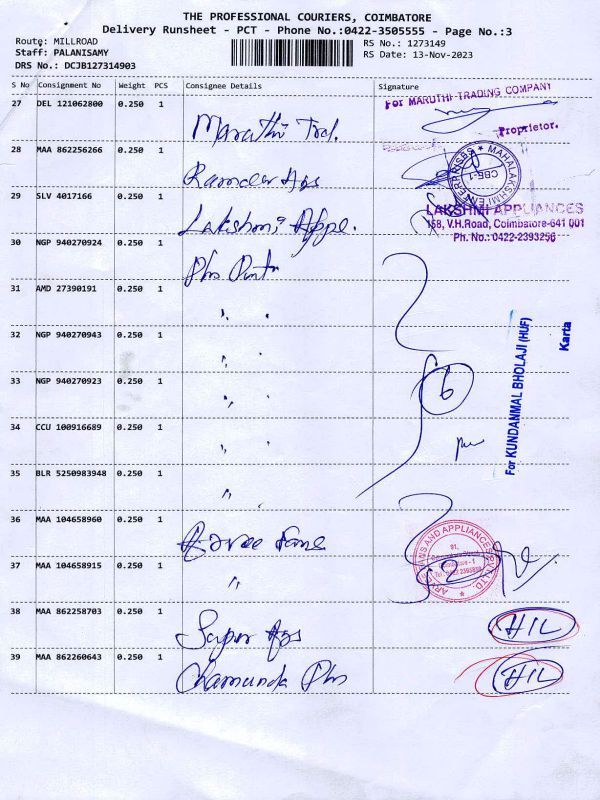 THE PROFESSIONAL COURIERS, COIMBATORE
Delivery Runsheet - PCT - Phone No.:0422-3505555 - Page No.:3
Route: MILLROAD
RS No.: 1273149
Staff: PALANISAMY
RS Date: 13-Nov-2023
DRS No.: DCJB127314903
S No Consignment No Weight PCS Consignee Details Signature
27 DEL 121062800 0.250 1
For MARUTHI TRADING COMPANY
Maruthi Trd.
Proprietor.
28 MAA 862256266 0.250 1
MAHALAKSHMI ENTERPRISES
CBE-1
29 SLV 4017166 0.250 1
Lakshmi Appl.
LAKSHMI APPLIANCES
158, V.H.Road, Coimbatore-641 001
Ph. No.: 0422-2393256
30 NGP 940270924 0.250 1
31 AMD 27390191 0.250 1
" "
32 NGP 940270943 0.250 1
" "
33 NGP 940270923 0.250 1
" "
6
For KUNDANMAL BHOLAJI (HUF)
Karta
34 CCU 100916689 0.250 1
" "
35 BLR 5250983948 0.250 1
"
36 MAA 104658960 0.250 1
37 MAA 104658915 0.250 1
"
38 MAA 862258703 0.250 1
HIL
39 MAA 862260643 0.250 1
Chamunda
HIL